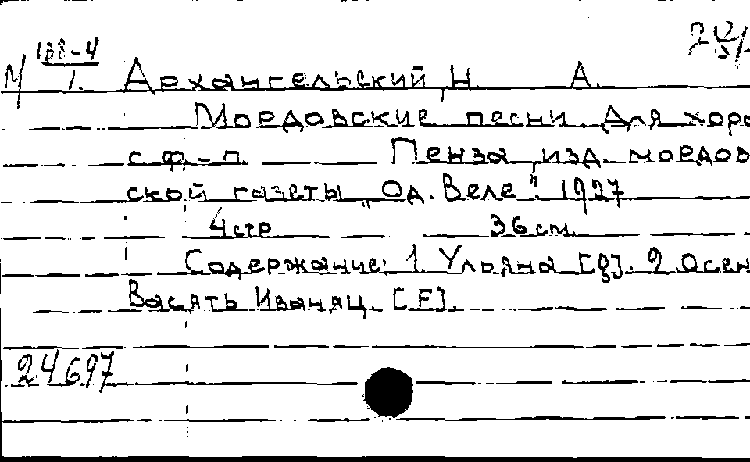 М 188-4
1.
Архангельский, Н. А.
Мордовские песни. Для хора
с ф.-п. Пенза, изд. мордов
ской газеты „Од. Веле". 1927
4 стр 36 см.
Содержание: 1. Ульяна [g]. 2 Осен
Васять Иваняц. [F].
24697